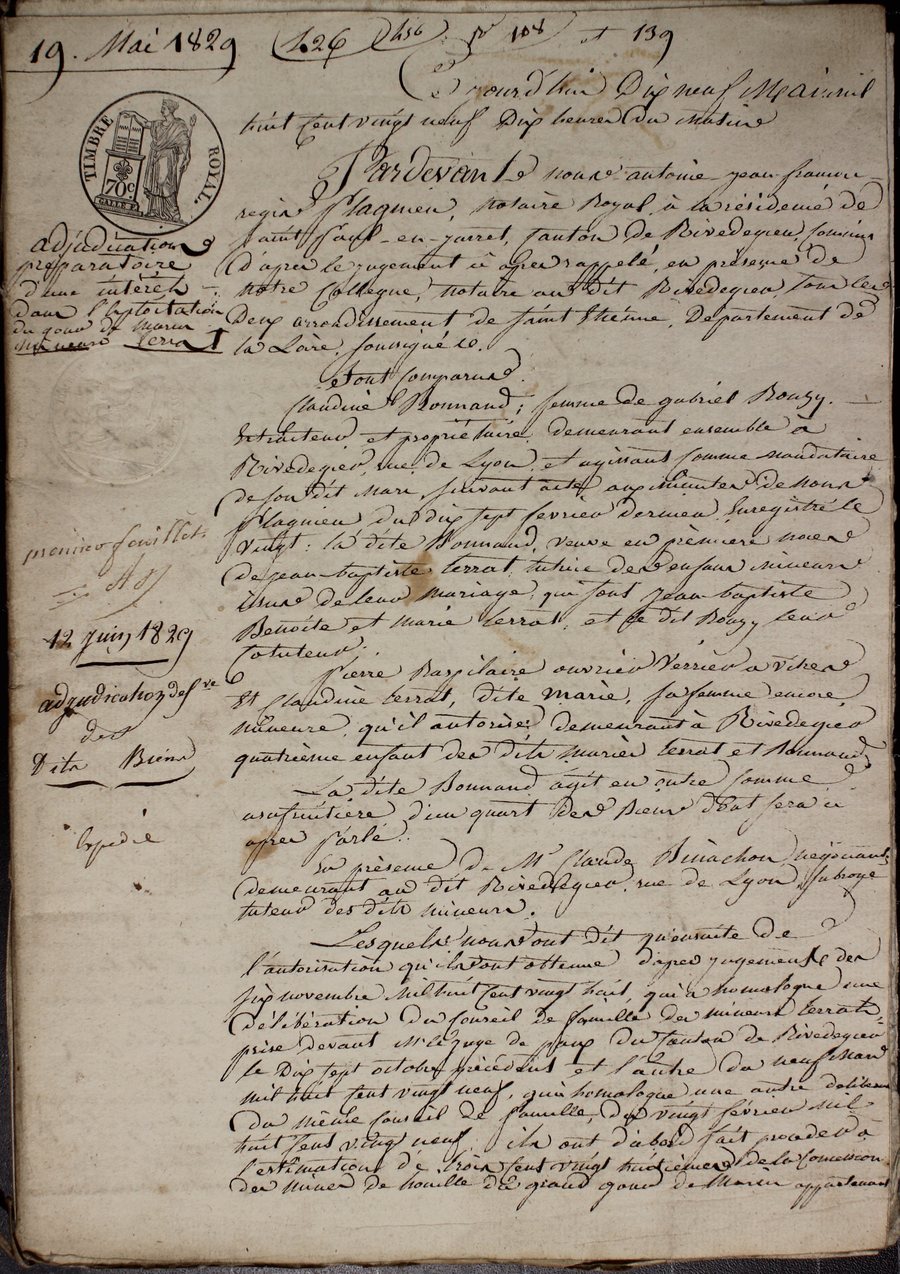 19. Mai 1829
126
N° 108 et 139
Cejourd'hui Dix neuf Mai mil
huit Cent vingt neuf Dix heures Du Matin
TIMBRE ROYAL.
70c
Pardevant nous antoine-jean-françois
regis Plagnieu, Notaire Royal à la résidence de
Saint Paul-en-jarret, Canton de Rivedegier, Commis
D'après le jugement ci après rappelé, en présence de
notre Collègue, notaire au dit Rivedegier, tous les
Deux arrondissement de Saint Etienne, Departement de
la Loire, soussignés.
adjudication
préparatoire
d'un intérêt
dans l'Exploitation
du gour de Marin
mineurs Terrat
Sont Comparus.
Claudine Bonnand, femme de gabriel Rouzy.
Extracteur et propriétaire, demeurant ensemble à
Rivedegier, rue de Lyon, et agissant Comme mandataire
de son dit Mari, suivant acte aux minutes de nous
Plagnieu du dix sept février dernier, Enregistré le
vingt: la dite Bonnand, veuve en première noces
de jean-baptiste terrat, tutrice des enfans mineurs
issus de leur mariage, qui sont jean-baptiste
Benoîte et marie terrat; et le dit Rouzy leur
Cotuteur.
premier feuillet.
12 juin 1829
adjudication defve
des
Dits Biens
Expédié
Pierre Raspilaire ouvrier Verrier à vitres
Et Claudine terrat, dite Marie, sa femme encore
mineure, qu'il autorise, demeurant à Rivedegier
quatrième enfant des dits mariés terrat et Bonnand
La dite Bonnand agit en outre Comme
usufruitière d'un quart des Biens dont sera ci
après Parlé.
En présence de Mr Claude Binachon, négociant,
demeurant au dit Rivedegier, rue de Lyon, subrogé
tuteur des dits mineurs.
Lesquels nous ont dit qu'ensuite de
l'autorisation qu'ils ont obtenue d'après jugements des
six novembre Mil huit Cent vingt huit, qui a homologué une
délibération du Conseil de famille des mineurs terrat
prise devant Mr le juge de paix du Canton de Rivedegier
le Dix sept octobre précédent et l'autre du neuf Mars
mil huit Cent vingt neuf, qui homologue une autre
du même Conseil de famille, du vingt février mil
huit Cent vingt neuf, ils ont d'abord fait procéder à
l'estimation de trois Cent vingt huitièmes de la Concession
des mines de houille du grand gour de Marin appartenant